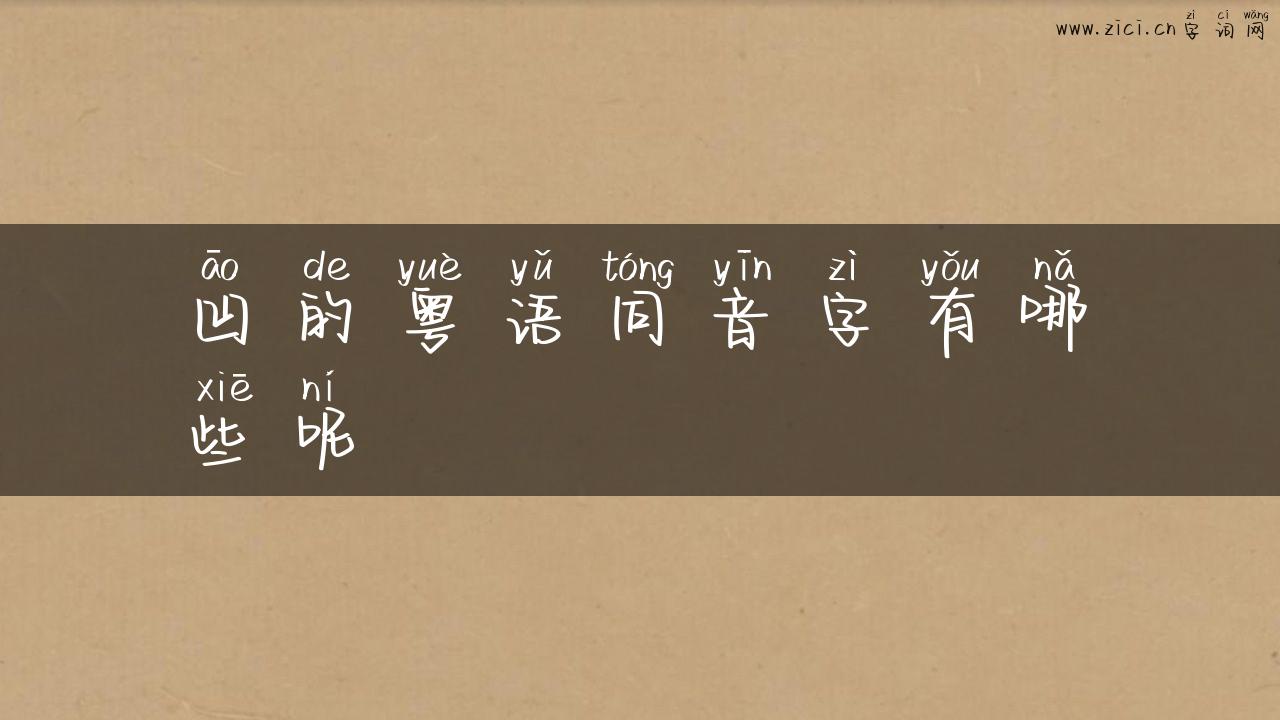 zì cí wǎng
www.zici.cn 字词网
āo de yuè yǔ tóng yīn zì yǒu nǎ
凹的粤语同音字有哪
xiē ní
些呢